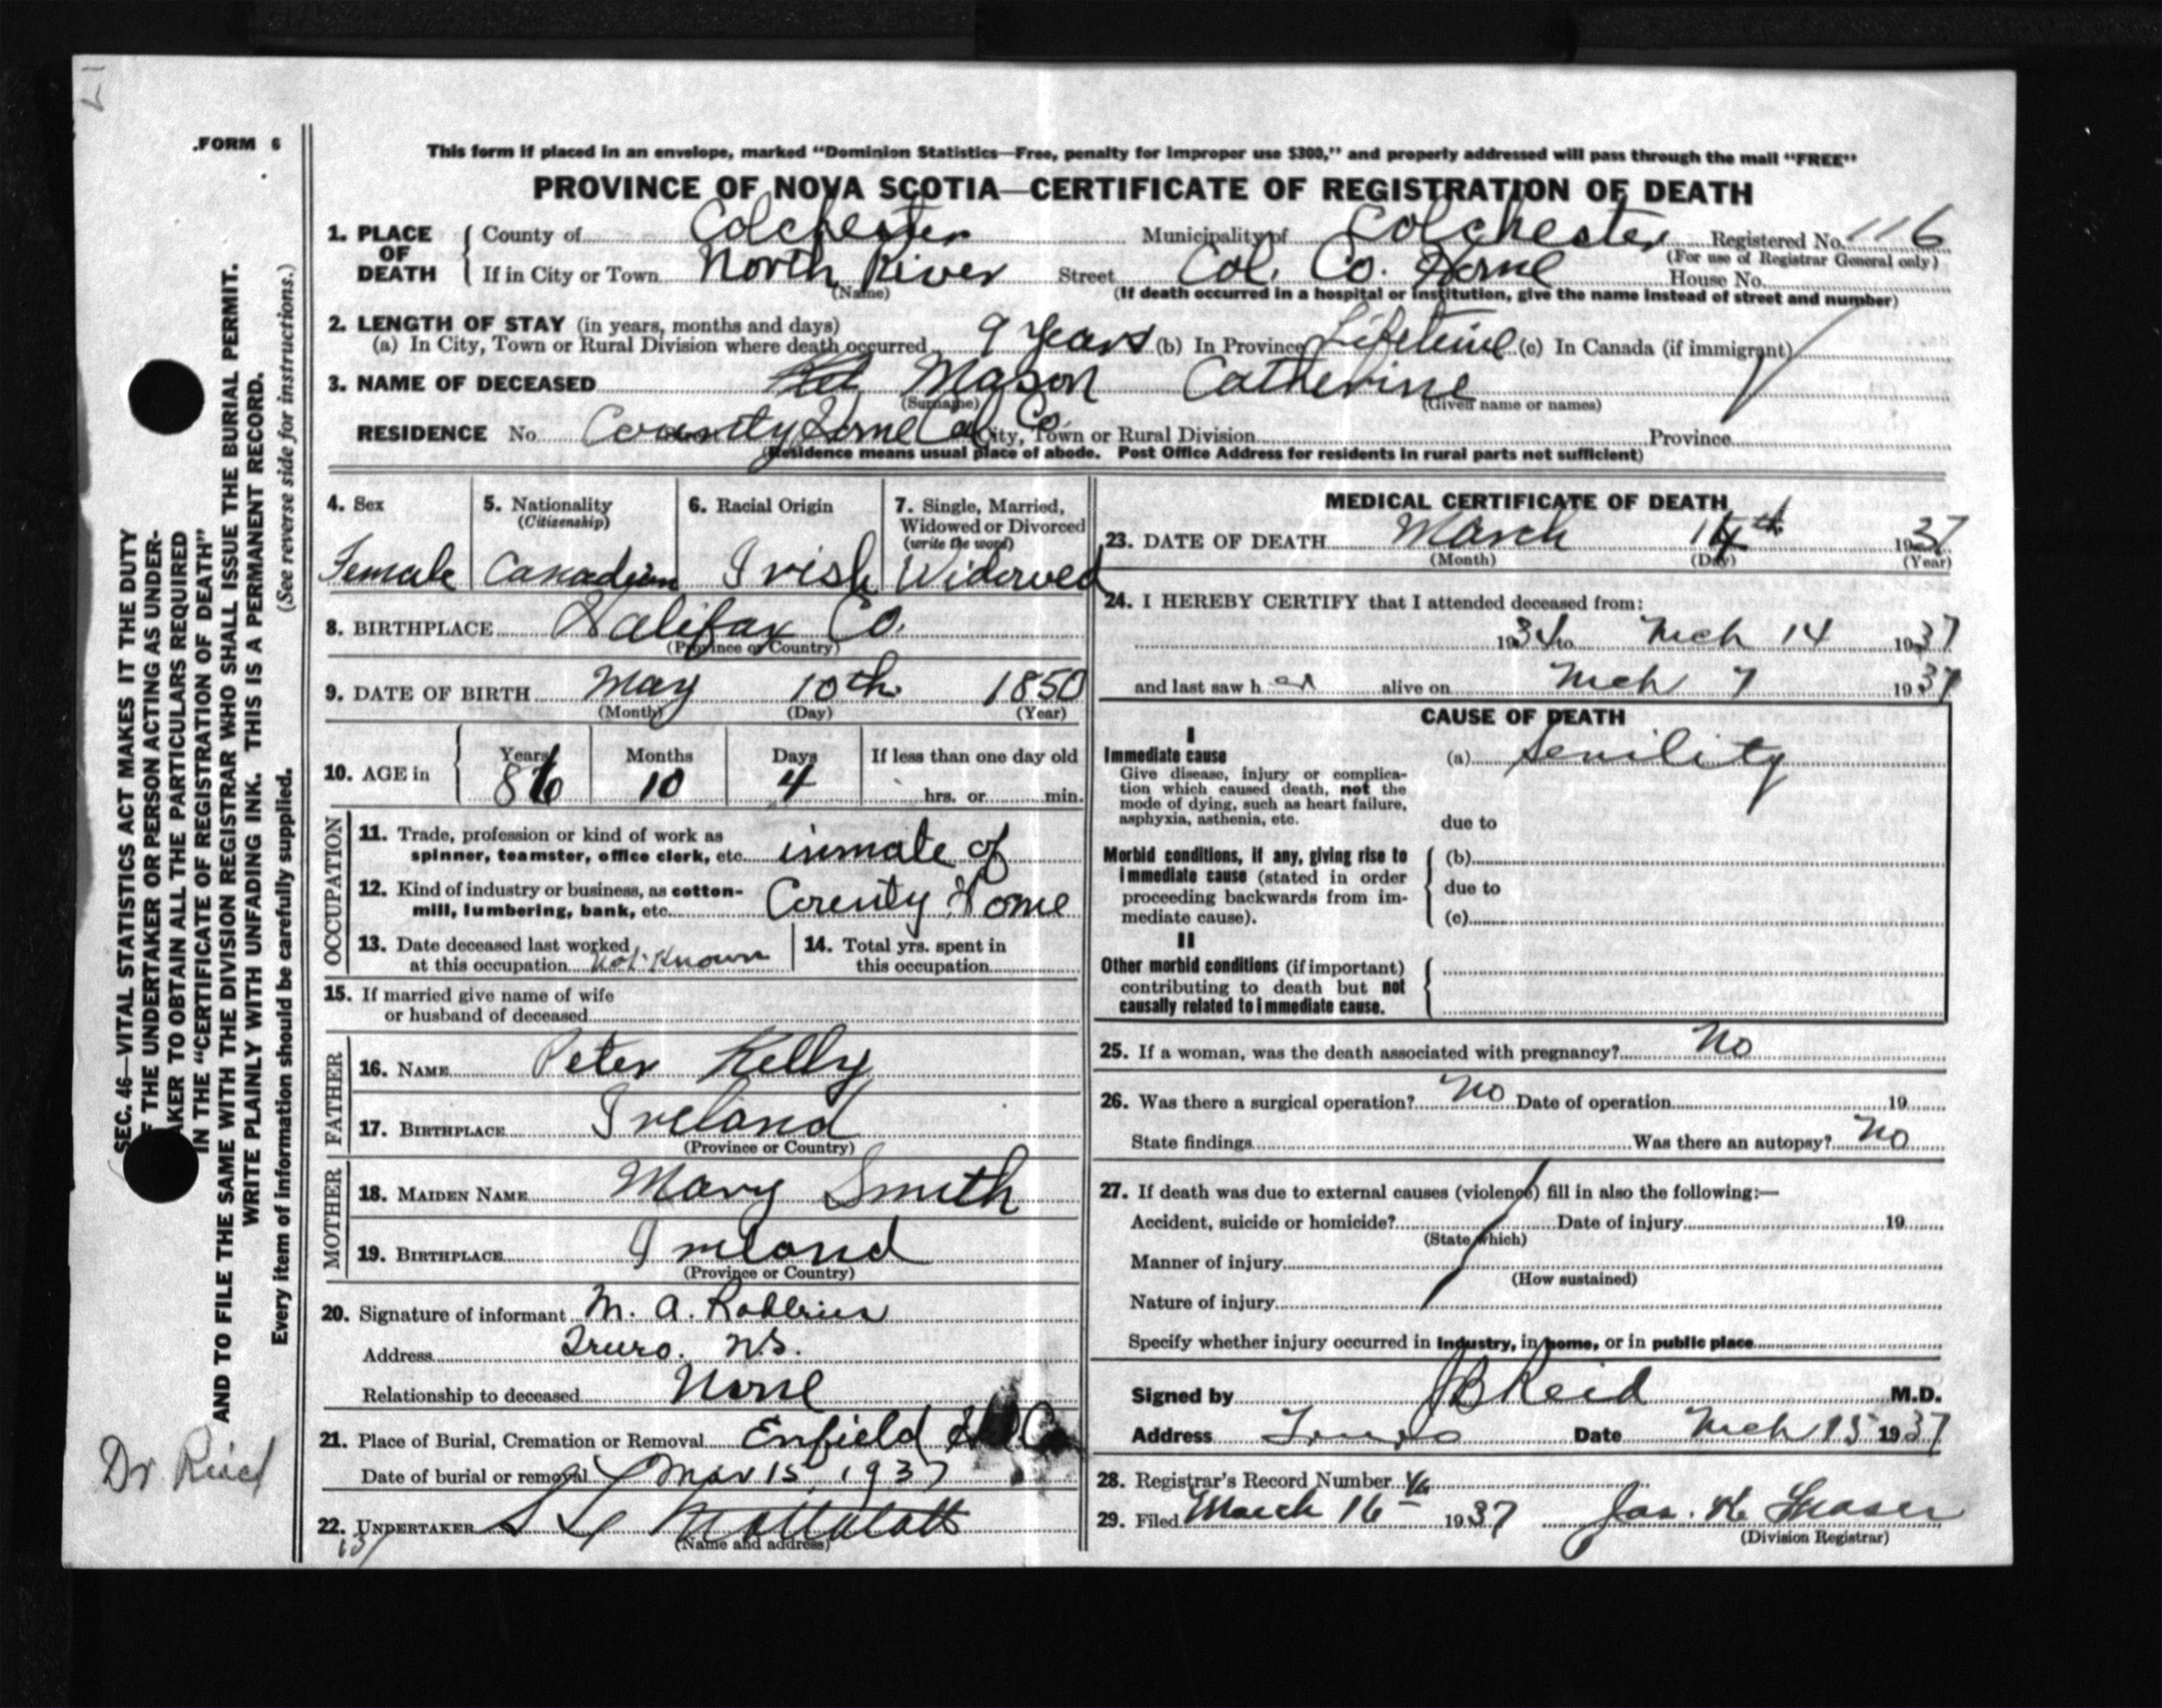 .FORM 6
This form if placed in an envelope, marked "Dominion Statistics—Free, penalty for improper use $300," and properly addressed will pass through the mail "FREE"
PROVINCE OF NOVA SCOTIA—CERTIFICATE OF REGISTRATION OF DEATH
1. PLACE OF DEATH County of Colchester Municipality of Colchester Registered No. 116
(For use of Registrar General only)
If in City or Town North River Street Col. Co. Home House No.
(Name) (If death occurred in a hospital or institution, give the name instead of street and number)
2. LENGTH OF STAY (in years, months and days)
(a) In City, Town or Rural Division where death occurred 9 years (b) In Province Lifetime (c) In Canada (if immigrant)
3. NAME OF DECEASED Mason Catherine
(Surname) (Given name or names)
RESIDENCE No. County Home Col Co. City, Town or Rural Division Province
(Residence means usual place of abode. Post Office Address for residents in rural parts not sufficient)
4. Sex 5. Nationality (Citizenship) 6. Racial Origin 7. Single, Married, Widowed or Divorced (write the word)
Female Canadian Irish Widowed
8. BIRTHPLACE Halifax Co.
(Province or Country)
9. DATE OF BIRTH May 10th 1850
(Month) (Day) (Year)
10. AGE in Years Months Days If less than one day old
86 10 4 hrs. or min.
OCCUPATION
11. Trade, profession or kind of work as
spinner, teamster, office clerk, etc. inmate of
12. Kind of industry or business, as cotton-
mill, lumbering, bank, etc. County Home
13. Date deceased last worked
at this occupation Not Known
14. Total yrs. spent in
this occupation
15. If married give name of wife
or husband of deceased
FATHER
16. NAME Peter Kelly
17. BIRTHPLACE Ireland
(Province or Country)
MOTHER
18. MAIDEN NAME Mary Smith
19. BIRTHPLACE Ireland
(Province or Country)
20. Signature of informant M. A.
Address Truro. N.S.
Relationship to deceased None
21. Place of Burial, Cremation or Removal Enfield
Date of burial or removal Mar 15 1937
22. UNDERTAKER
(Name and address)
MEDICAL CERTIFICATE OF DEATH
23. DATE OF DEATH March 14th 1937
(Month) (Day) (Year)
24. I HEREBY CERTIFY that I attended deceased from:
1934 to Mch 14 1937
and last saw her alive on Mch 7 1937
CAUSE OF DEATH
I
Immediate cause (a) Senility
Give disease, injury or complica-
tion which caused death, not the
mode of dying, such as heart failure,
asphyxia, asthenia, etc.
due to
Morbid conditions, if any, giving rise to (b)
immediate cause (stated in order
due to
proceeding backwards from im-
mediate cause). (c)
II
Other morbid conditions (if important)
contributing to death but not
causally related to immediate cause.
25. If a woman, was the death associated with pregnancy? No
26. Was there a surgical operation? No Date of operation 19
State findings Was there an autopsy? No
27. If death was due to external causes (violence) fill in also the following:—
Accident, suicide or homicide? Date of injury 19
(State which)
Manner of injury
(How sustained)
Nature of injury
Specify whether injury occurred in industry, in home, or in public place
Signed by JB Reid M.D.
Address Truro Date Mch 15 1937
28. Registrar's Record Number
29. Filed March 16 1937 Jas. K. Fraser
(Division Registrar)
SEC. 46—VITAL STATISTICS ACT MAKES IT THE DUTY
THE UNDERTAKER OR PERSON ACTING AS UNDER-
AKER TO OBTAIN ALL THE PARTICULARS REQUIRED
IN THE "CERTIFICATE OF REGISTRATION OF DEATH"
AND TO FILE THE SAME WITH THE DIVISION REGISTRAR WHO SHALL ISSUE THE BURIAL PERMIT.
WRITE PLAINLY WITH UNFADING INK. THIS IS A PERMANENT RECORD.
Every item of information should be carefully supplied. (See reverse side for instructions.)
Dr Reid